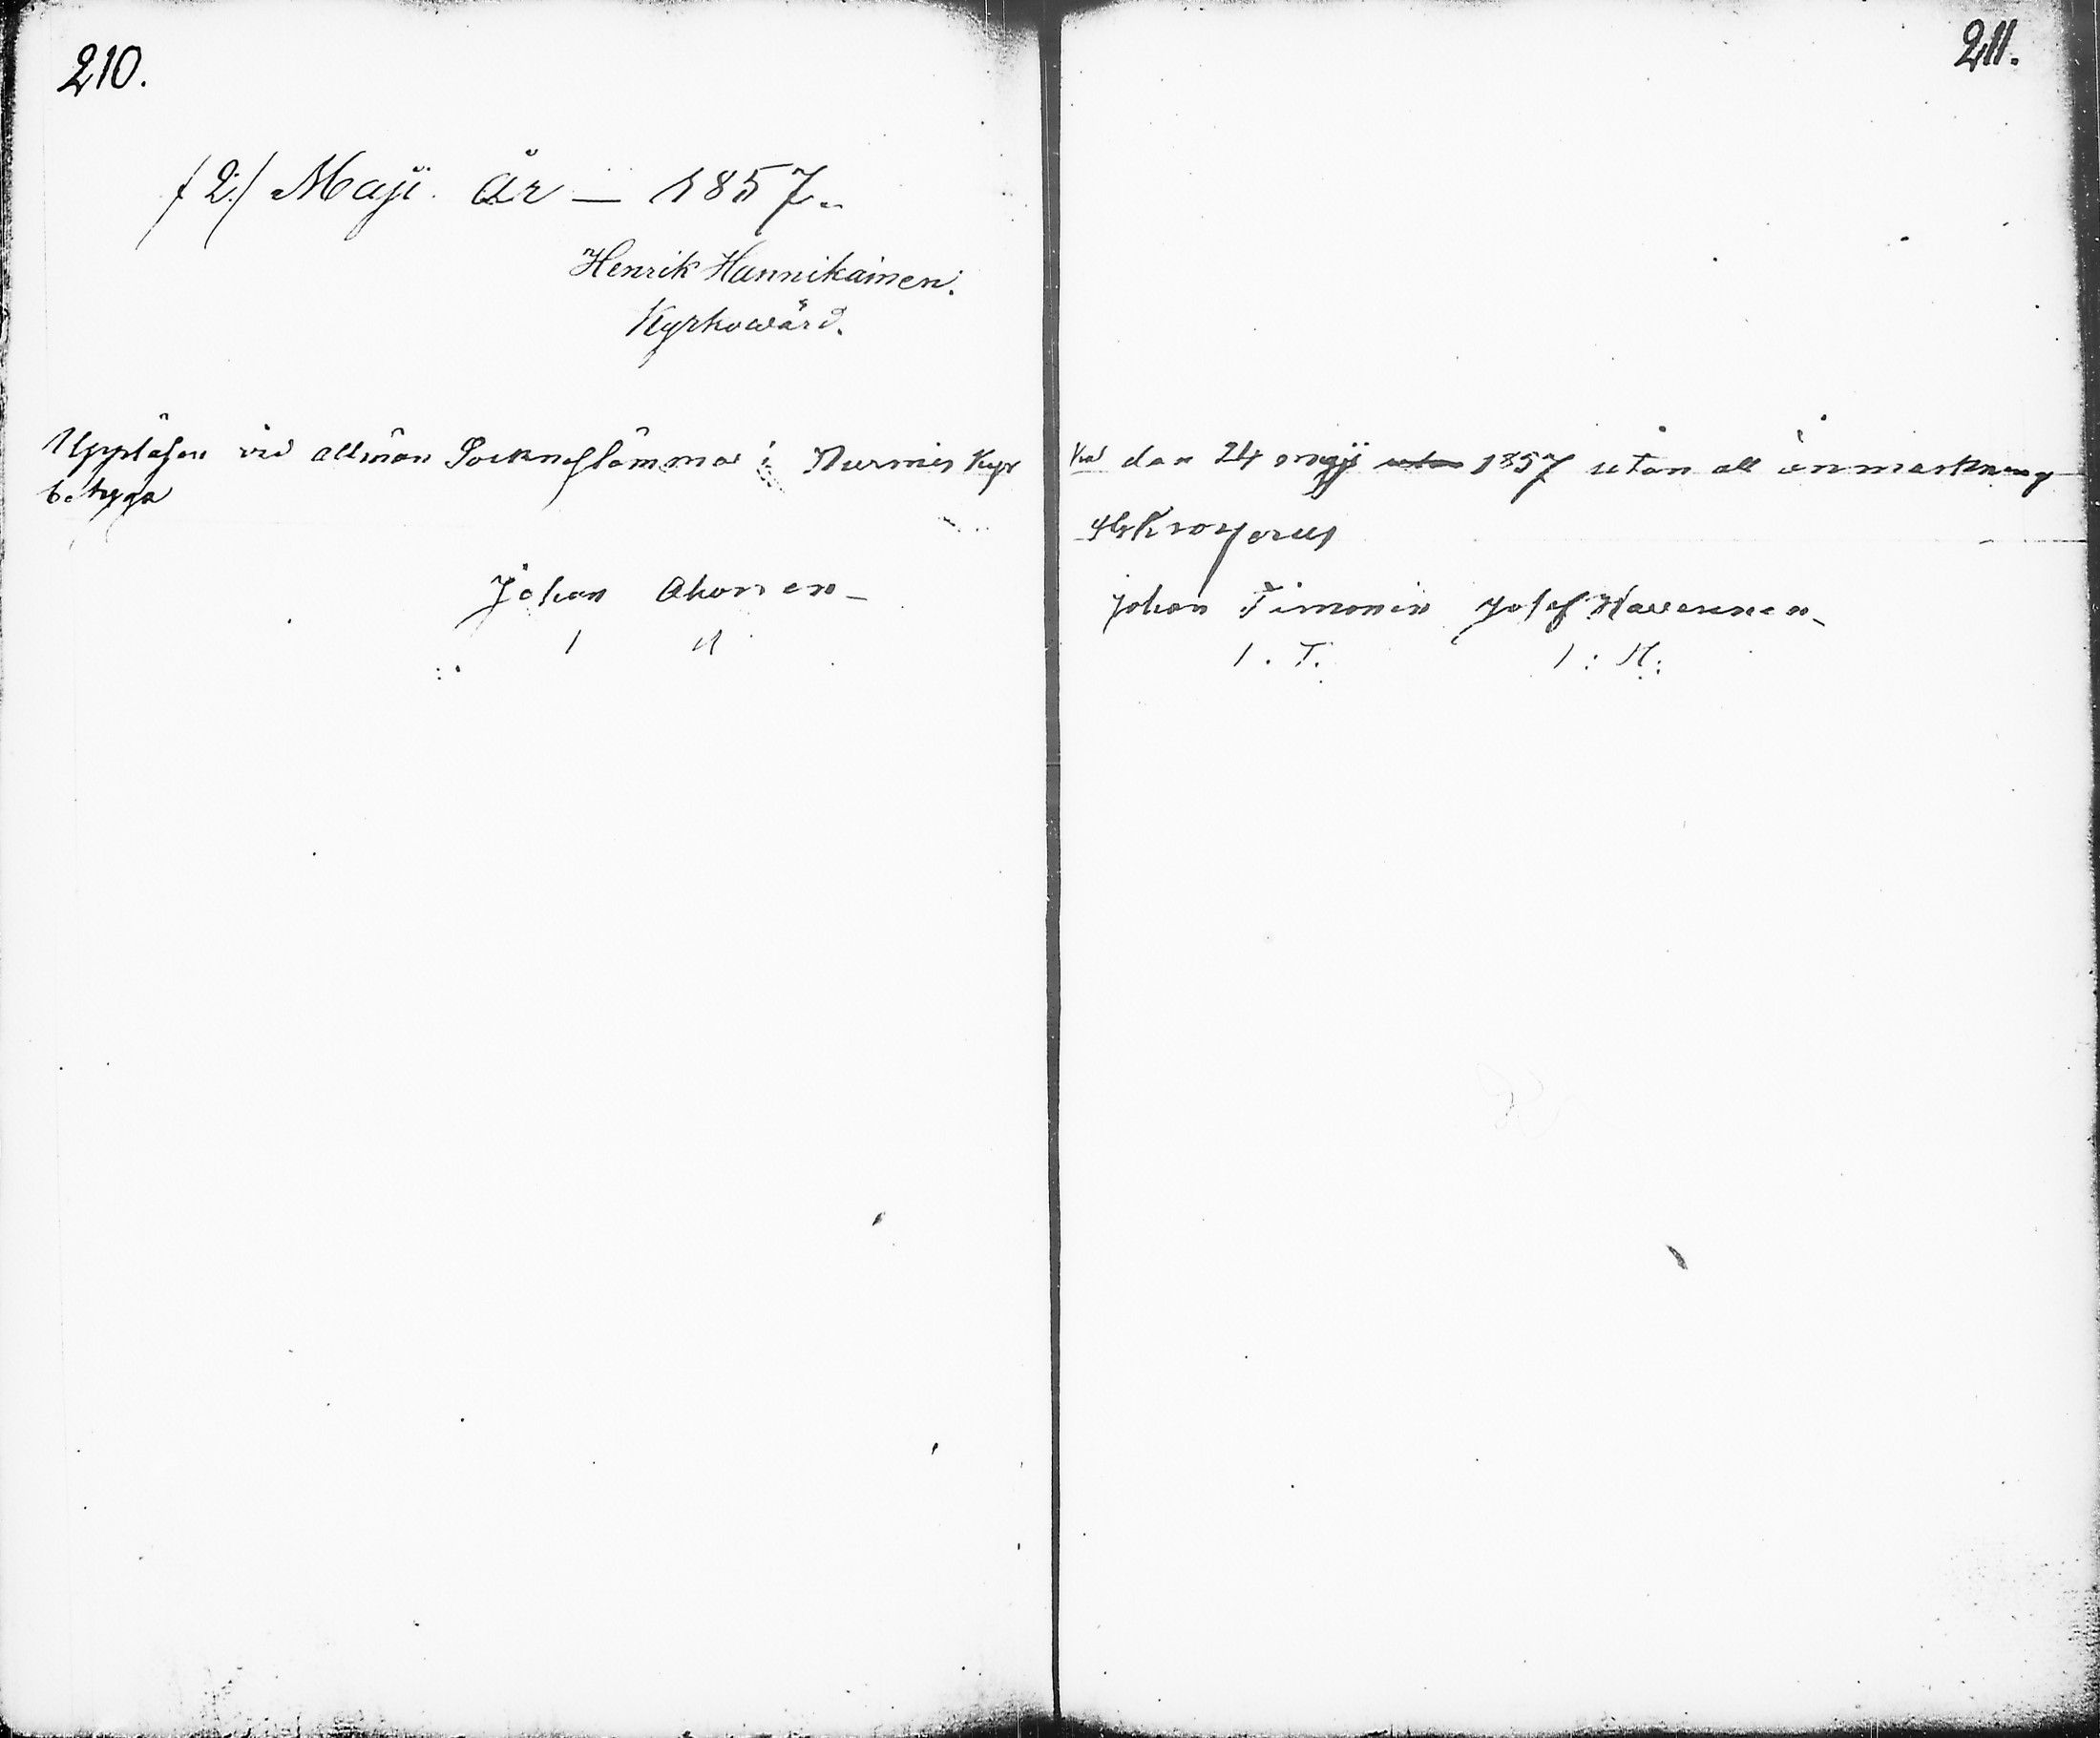 210.
(2) Maji. År — 1857.
Henrik Hannikainen.
Kyrkowärd.
Uppläsen vid allmän Socknestämma i Nurmis Kyr
betyga
Johan Ahonen
I A
211.
den 24 maji 1857 utan all anmärkning
Johan Timonin Josef Havenen
I. T. I: H: